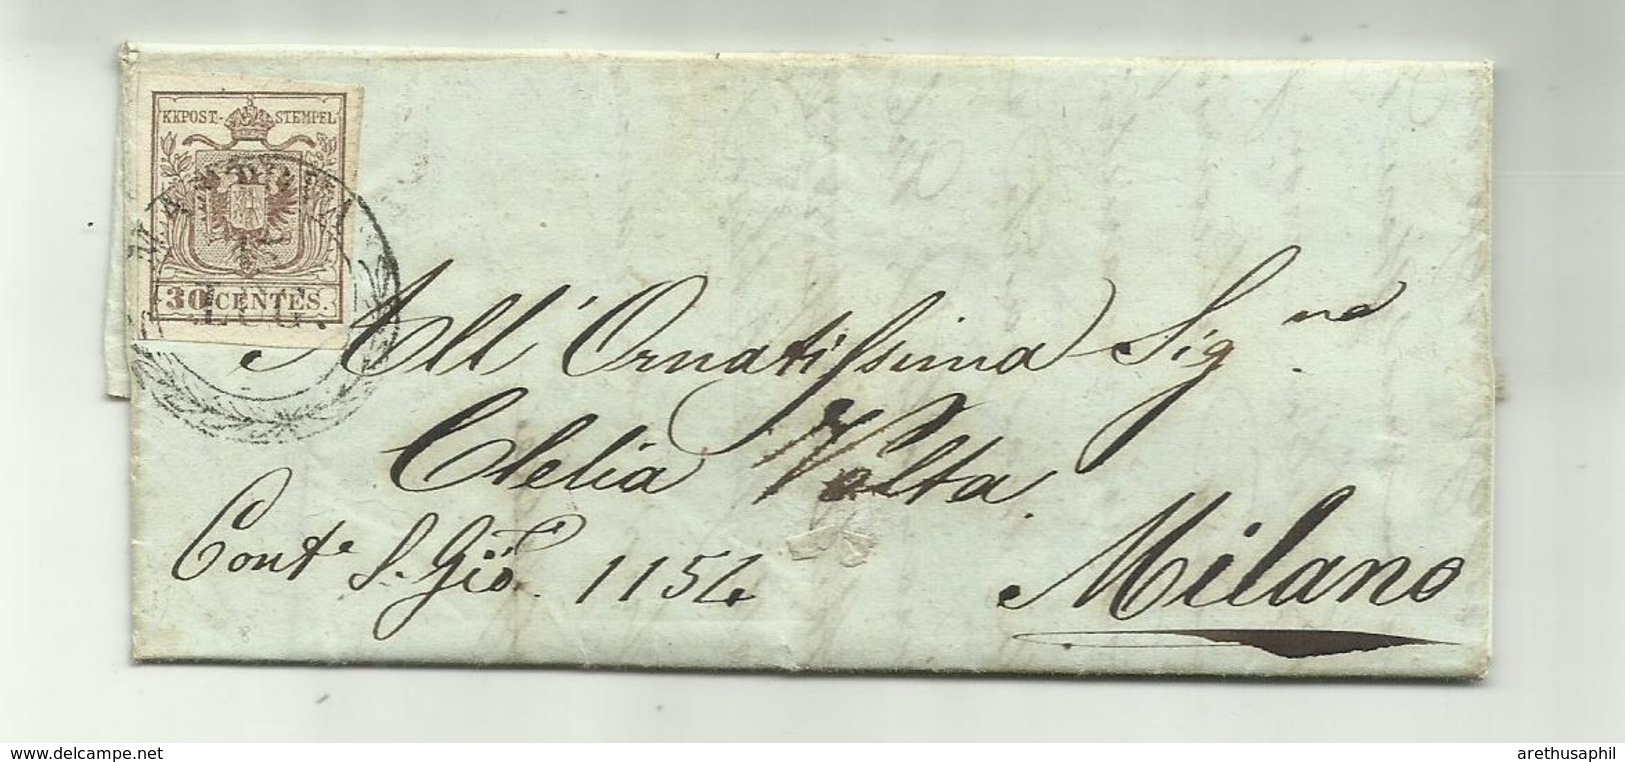 KKPOST-STEMPEL
MANTOVA
12
LUG.
30 CENTES.
All' Ornatissima Sig.na
Clelia Volta.
Cont.e S. Gio. 1154
Milano
www.delcampe.net
arethusaphil